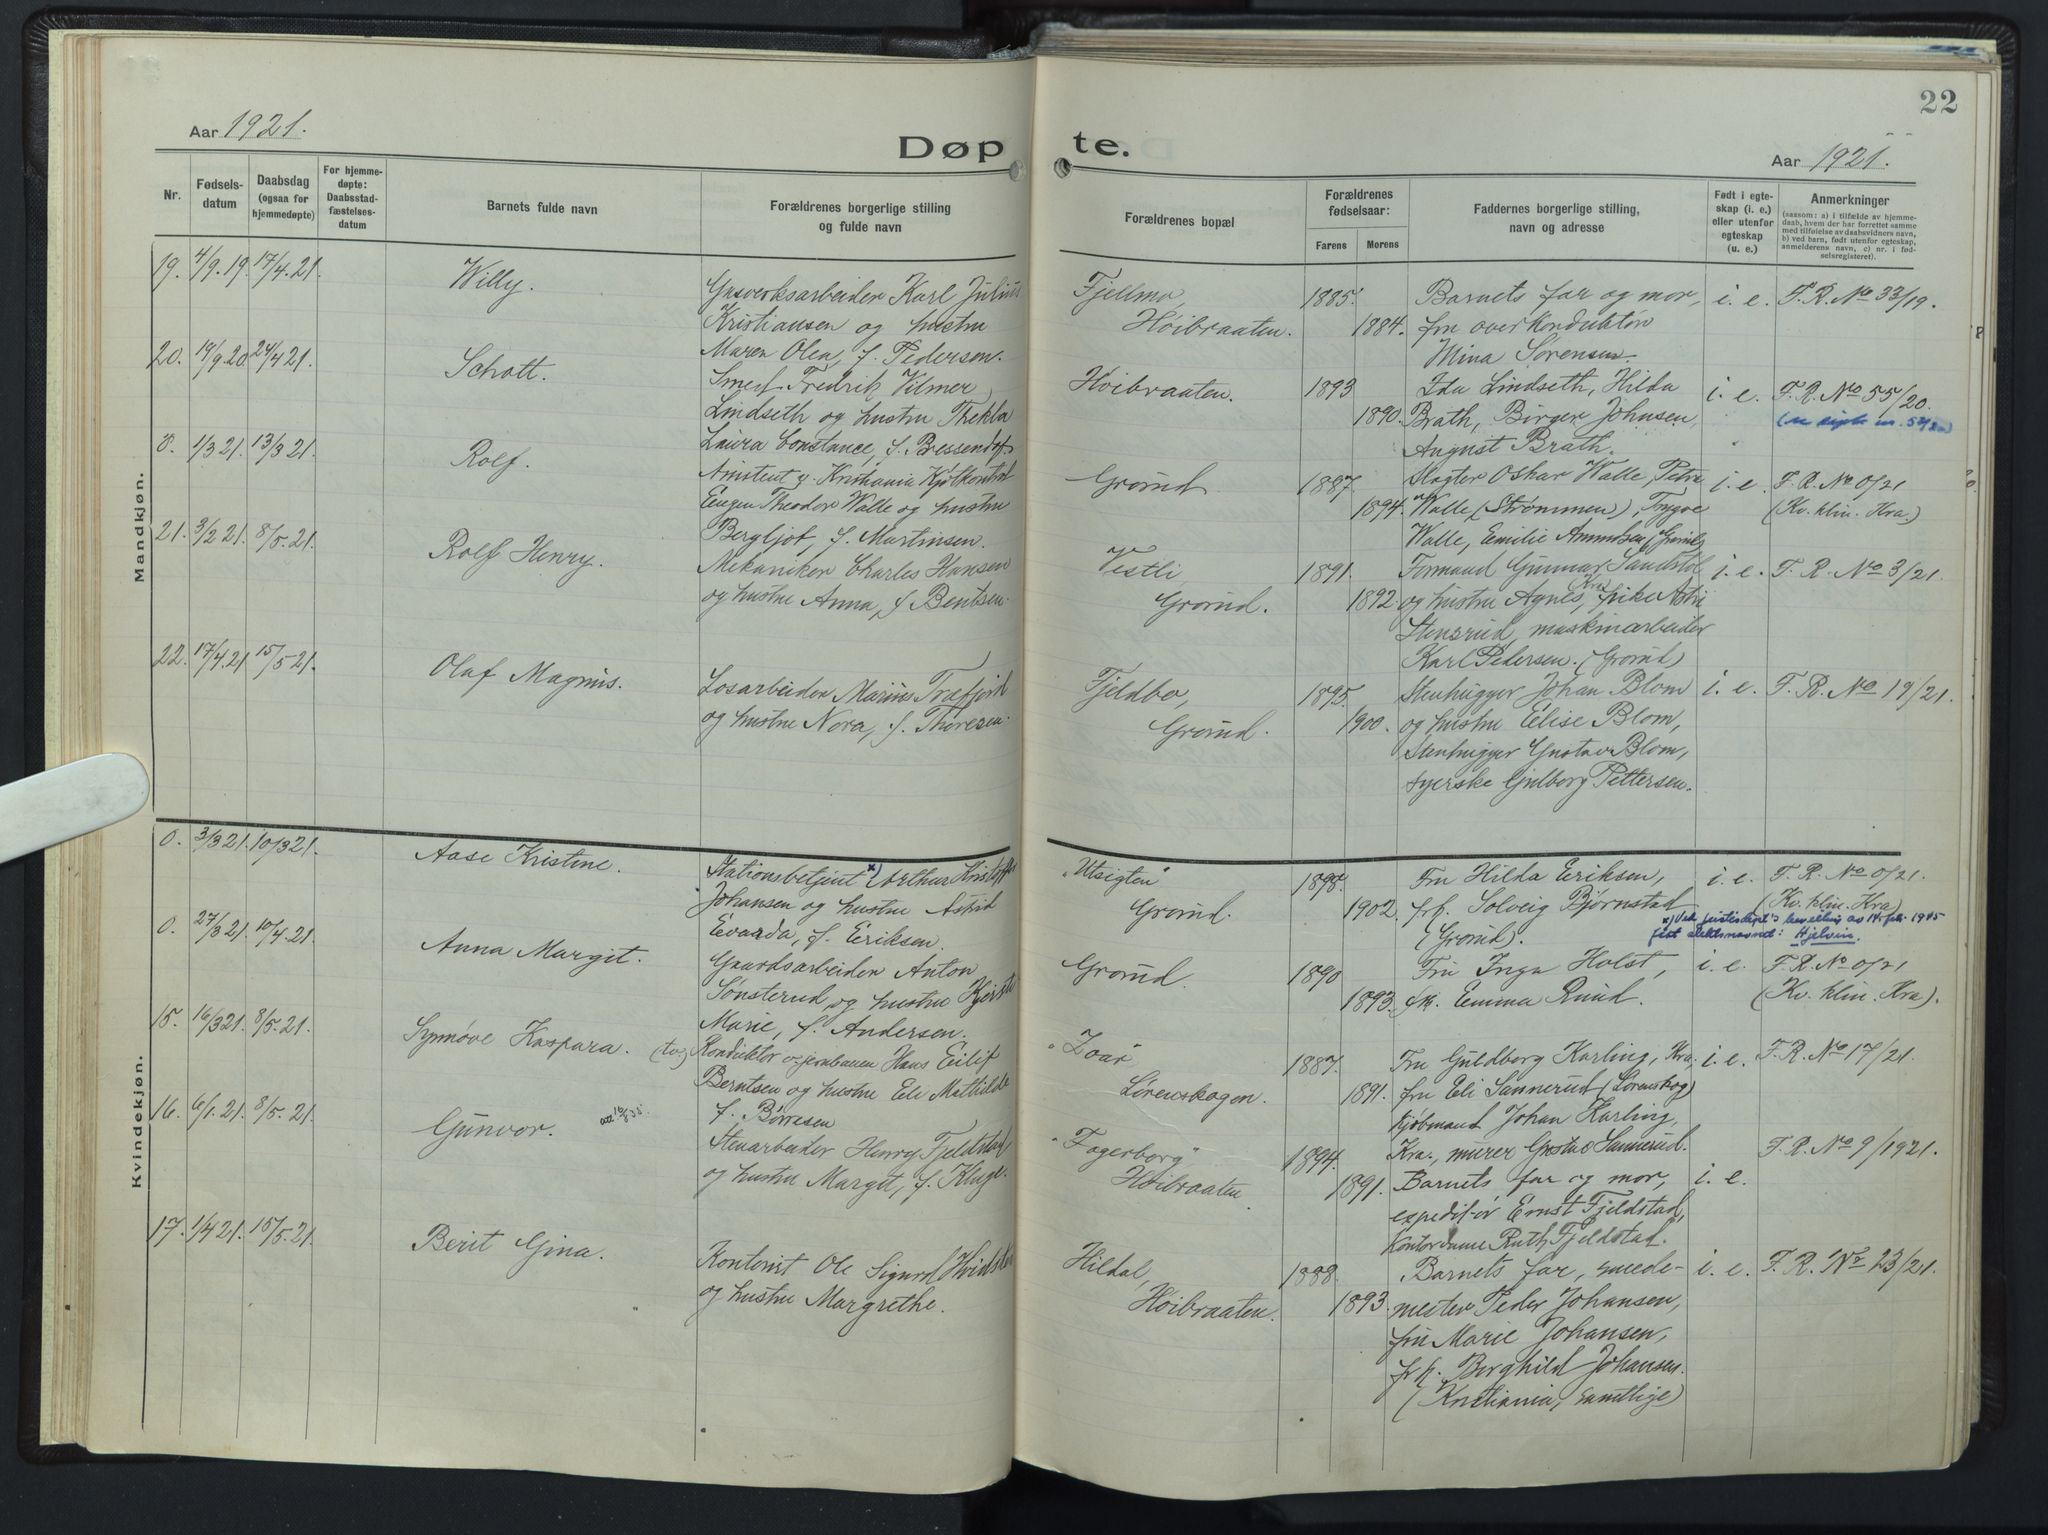 22
Aar 1921.
Døpte.
Aar 1921.
Nr.
Fødsels-
datum
Daabsdag
(ogsaa for
hjemmedøpte)
For hjemme-
døpte:
Daabsstad-
fæstelses-
datum
Barnets fulde navn
Forældrenes borgerlige stilling
og fulde navn
Forældrenes bopæl
Forældrenes
fødselsaar:
Farens
Morens
Faddernes borgerlige stilling,
navn og adresse
Født i egte-
skap (i. e.)
eller utenfor
egteskap
(u. e.)
Anmerkninger
(saasom: a) i tilfælde av hjemme-
daab, hvem der har forrettet samme
med tilføielse av daabsvidners navn,
b) ved barn, født utenfor egteskap,
anmelderens navn, c) nr. i fød-
selsregisteret).
Mandkjøn.
19. 4/9.19. 17/4.21. Willy.
Gasverksarbeider Karl Julius
Kristiansen og hustru
Maren Olea, f. Pedersen.
Fjellmo,
Høibraaten.
1885.
1884.
Barnets far og mor,
fru overkonduktør
Mina Sørensen.
i. e.
F. R. No 33/19.
20. 19/9.20 24/4.21. Schott.
Smed Fredrik Vilmer
Lindseth og hustru Thekla
Laura Constance, f. Bressendorf.
Høibraaten.
1893
1890.
Ida Lindseth, Hilda
Brath, Birger Johnsen,
August Brath.
i. e.
F. R. No 55/20.
0. 1/3 21. 13/3 21. Rolf.
Assistent v. Kristiania Kjølkontrol
Eugen Theodor Walle og hustru
Bergljot, f. Martinsen.
Grorud
1887.
1894.
Slagter Oskar Walle, Petra
Walle (Strømmen), Trygve
Walle, Emilie Amundsen (Grorud)
i. e.
F. R. No 0/21
(Kv. klin. Kra.)
21. 3/2 21. 8/5.21. Rolf Henry.
Mekaniker Charles Hansen
og hustru Anna, f. Bentsen.
Vestli,
Grorud.
1891.
1892.
Formand Gunnar Sandstøl
og hustru Agnes, Kra, frøke Astri
Stensrud, maskinarbeider
Karl Pedersen. (Grorud)
i. e.
F. R. No 3/21.
22. 17/4.21 15/5 21. Olaf Magnus.
Losarbeider Marius Træfjord
og hustru Nora, f. Thoresen.
Fjeldbo,
Grorud.
1895.
1900.
Stenhugger Johan Blom
og hustru Elise Blom,
Stenhugger Gustav Blom,
syerske Gulborg Pettersen.
i. e.
F. R. No 19/21.
Kvindekjøn.
0. 3/3 21. 10/3 21. Aase Kristine.
Stationsbetjent x) Arthur Kristoffer
Johansen og hustru Astrid
Evarda, f. Eriksen.
"Utsigten"
Grorud.
1898.
1902.
Fru Hilda Eriksen,
frk. Solveig Bjørnstad
(Grorud).
i. e.
F. R. No 0/21.
(Kv. klin. Kra)
x) Ved justisdept's bevilling av 14. feb. 1945
fåt slektsnavnet: Hjelvin.
0. 27/3 21. 10/4.21. Anna Margit.
Gaardsarbeider Anton
Sønsterud og hustru Kjersti
Marie, f. Andersen.
Grorud.
1890
1893.
Fru Inga Holst,
frk. Emma Ruud.
i. e.
F. R. No 0/21
(Kv. klin. Kra).
15. 16/3 21. 8/5.21. Synnøve Kaspara.
Konduktør v. jernbanen Hans Eilif
Berntsen og hustru Eli Mathilde
f. Børresen
"Zoar"
Lørenskogen.
1887.
1891.
Fru Guldborg Karling, Kra,
fru Eli Sannerud (Lørenskog)
kjøbmand Johan Karling,
Kra., murer Gustav Sannerud.
i. e.
F. R. No 17/21.
16. 6/1.21. 8/5.21. Gunvor.
Stenarbeider Henry Fjeldstad
og hustru Margit, f. Kluge.
"Fagerborg"
Høibraaten
1894.
1891.
Barnets far og mor,
expeditør Ernst Fjeldstad,
Kontordame Ruth Fjeldstad.
i. e.
F. R. No 9/1921.
17. 1/4 21. 15/5.21. Berit Gina.
Kontorist Ole Sigurd Hvidsten
og hustru Margrethe.
Hildal,
Høibraaten.
1888.
1893.
Barnets far, smede-
mester Peder Johansen,
fru Marie Johansen,
frk. Borghild Johansen.
(Kristiania, samtlige)
i. e.
F. R. No 23/21.